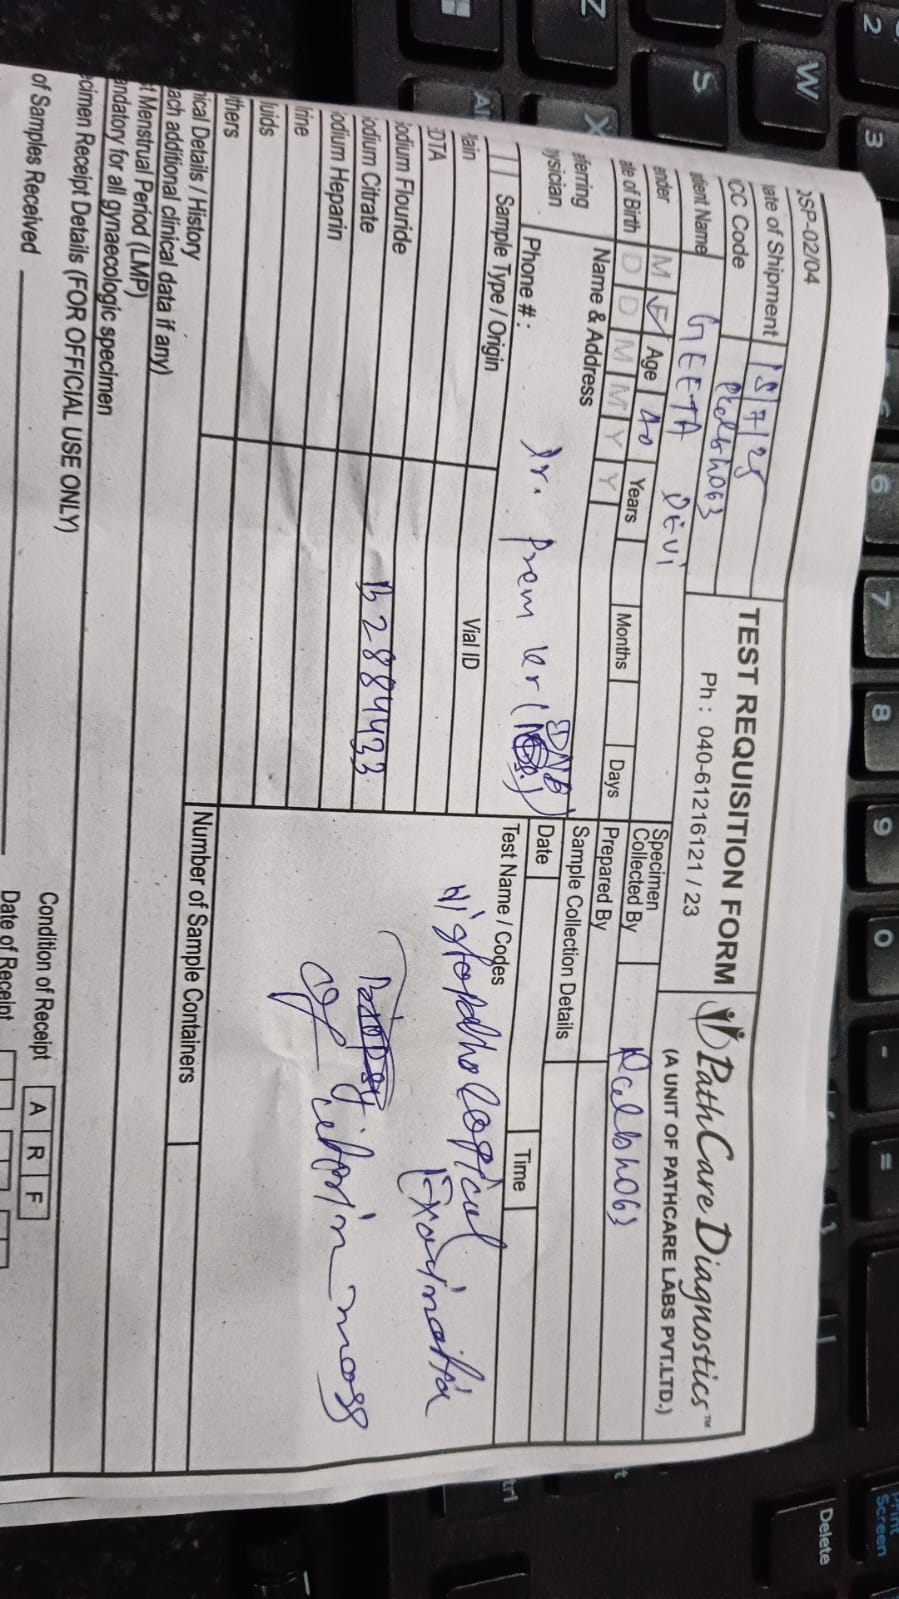 OSP-02/04
TEST REQUISITION FORM
Ph : 040-61216121 / 23
PathCare Diagnostics™
(A UNIT OF PATHCARE LABS PVT.LTD.)
ate of Shipment 18/7/25
CC Code
atient Name GEETA DEVI
ender M F Age 40 Years Months Days
ate of Birth D D M M Y Y
eferring
ysician
Name & Address
Dr. Prem kr (DNB)
Phone # :
Specimen
Collected By
Prepared By
Sample Collection Details
Date Time
Sample Type / Origin Vial ID
lain
DTA
odium Flouride
odium Citrate B2884433
odium Heparin
rine
luids
thers
Test Name / Codes
Histopathological
Examination
of
mass
nical Details / History
ach additional clinical data if any)
t Menstrual Period (LMP)
andatory for all gynaecologic specimen
Number of Sample Containers
ecimen Receipt Details (FOR OFFICIAL USE ONLY)
of Samples Received
Condition of Receipt A R F
Date of Receipt
2 3 6 7 8 9 0 - =
W
S
Z
X
Alt
Print
Screen
Delete
ctrl